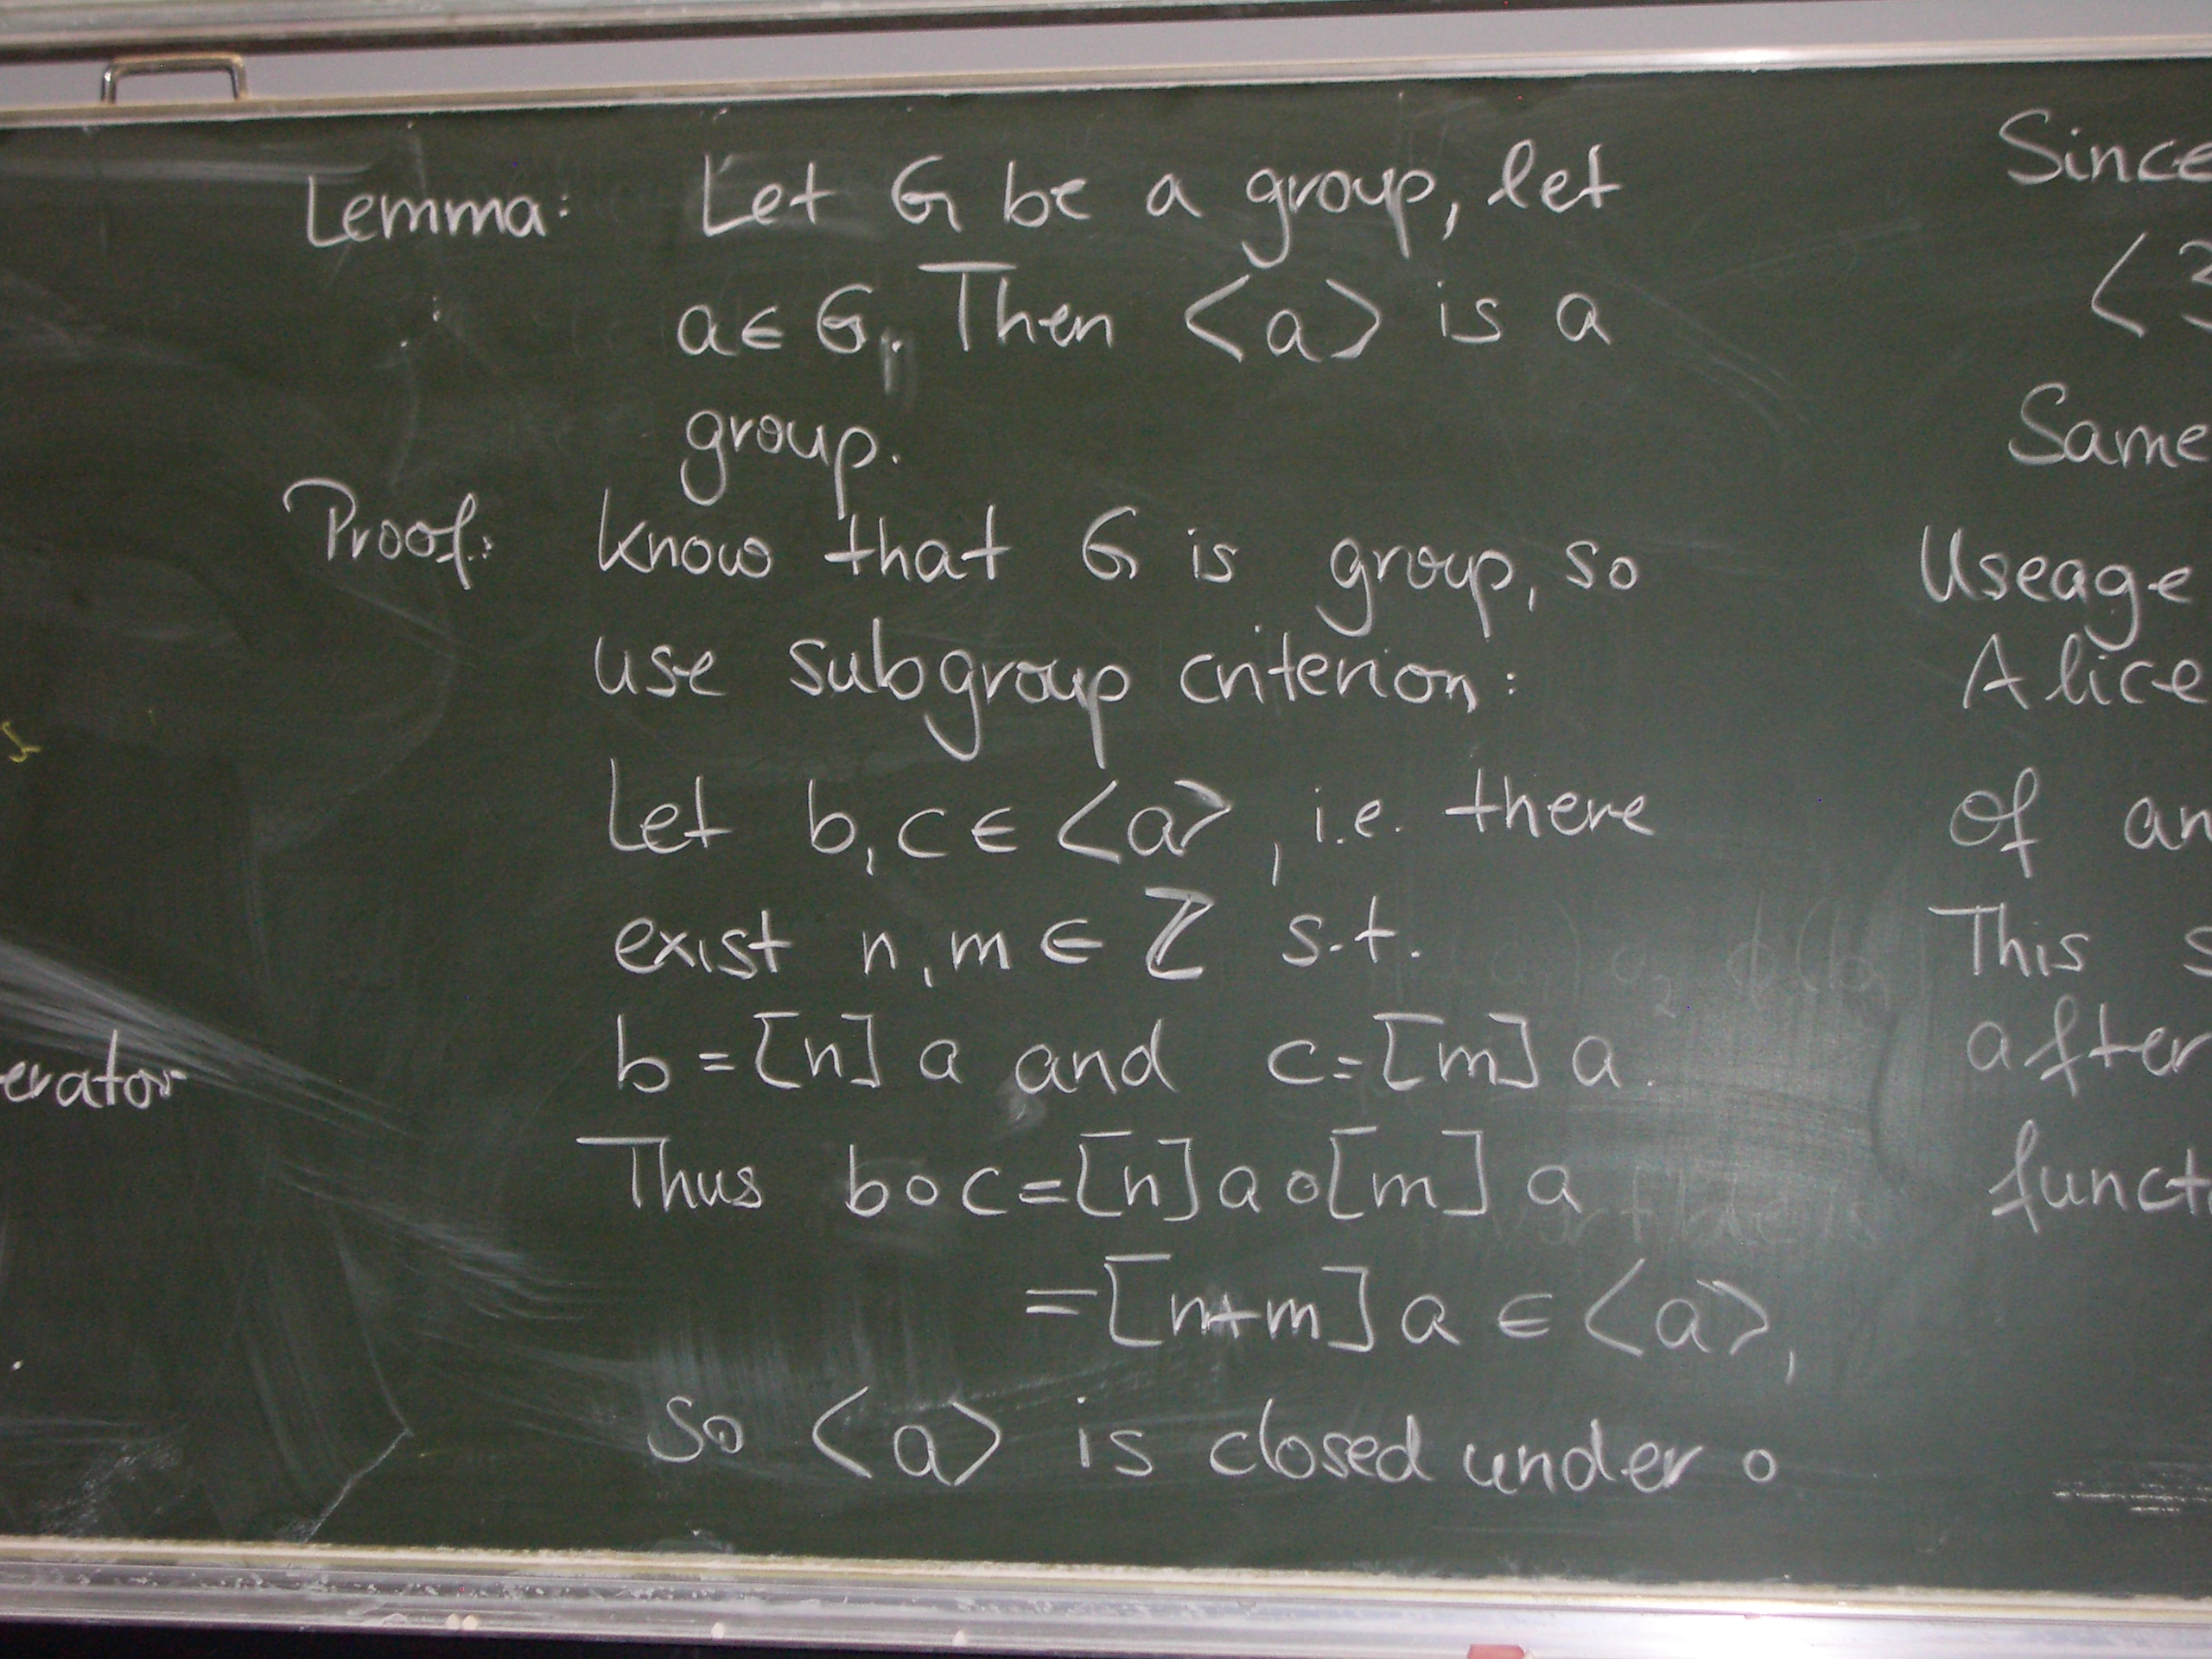 Lemma: Let G be a group, let
a ∈ G. Then <a> is a
group.
Proof: Know that G is group, so
use subgroup criterion:
Let b, c ∈ <a>, i.e. there
exist n, m ∈ ℤ s.t.
b = [n] a and c = [m] a.
Thus b∘c = [n] a ∘ [m] a
= [n+m] a ∈ <a>,
so <a> is closed under ∘
erator
Since
<3
Same
Useage
Alice
of an
This s
after
funct